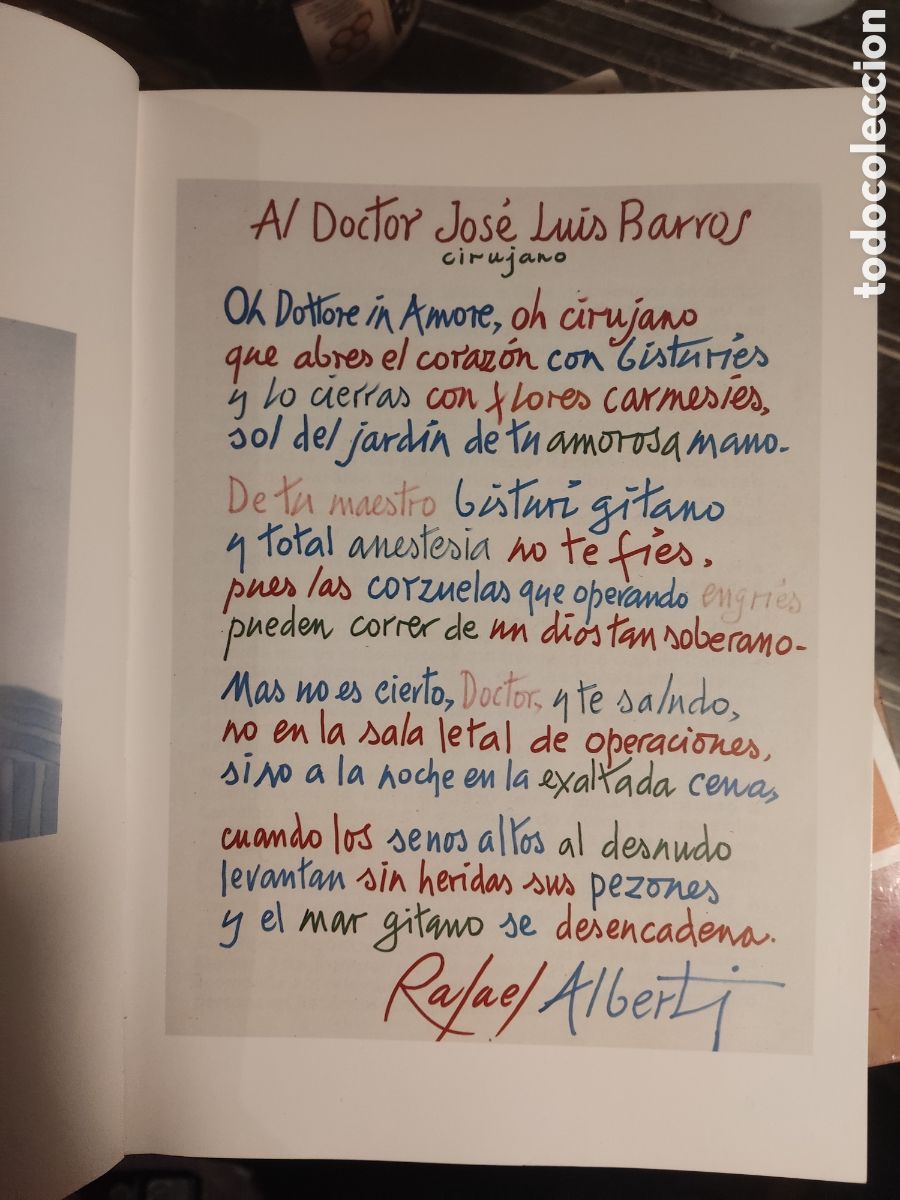 Al Doctor José Luis Barros
cirujano
Oh Dottore in Amore, oh cirujano
que abres el corazón con bisturíes
y lo cierras con flores carmesíes,
sol del jardín de tu amorosa mano.
De tu maestro bisturí gitano
y total anestesia no te fíes,
pues las corzuelas que operando engríes
pueden correr de un dios tan soberano.
Mas no es cierto, Doctor, y te saludo,
no en la sala letal de operaciones,
sino a la noche en la exaltada cena,
cuando los senos altos al desnudo
levantan sin heridas sus pezones
y el mar gitano se desencadena.
Rafael Alberti
todocoleccion